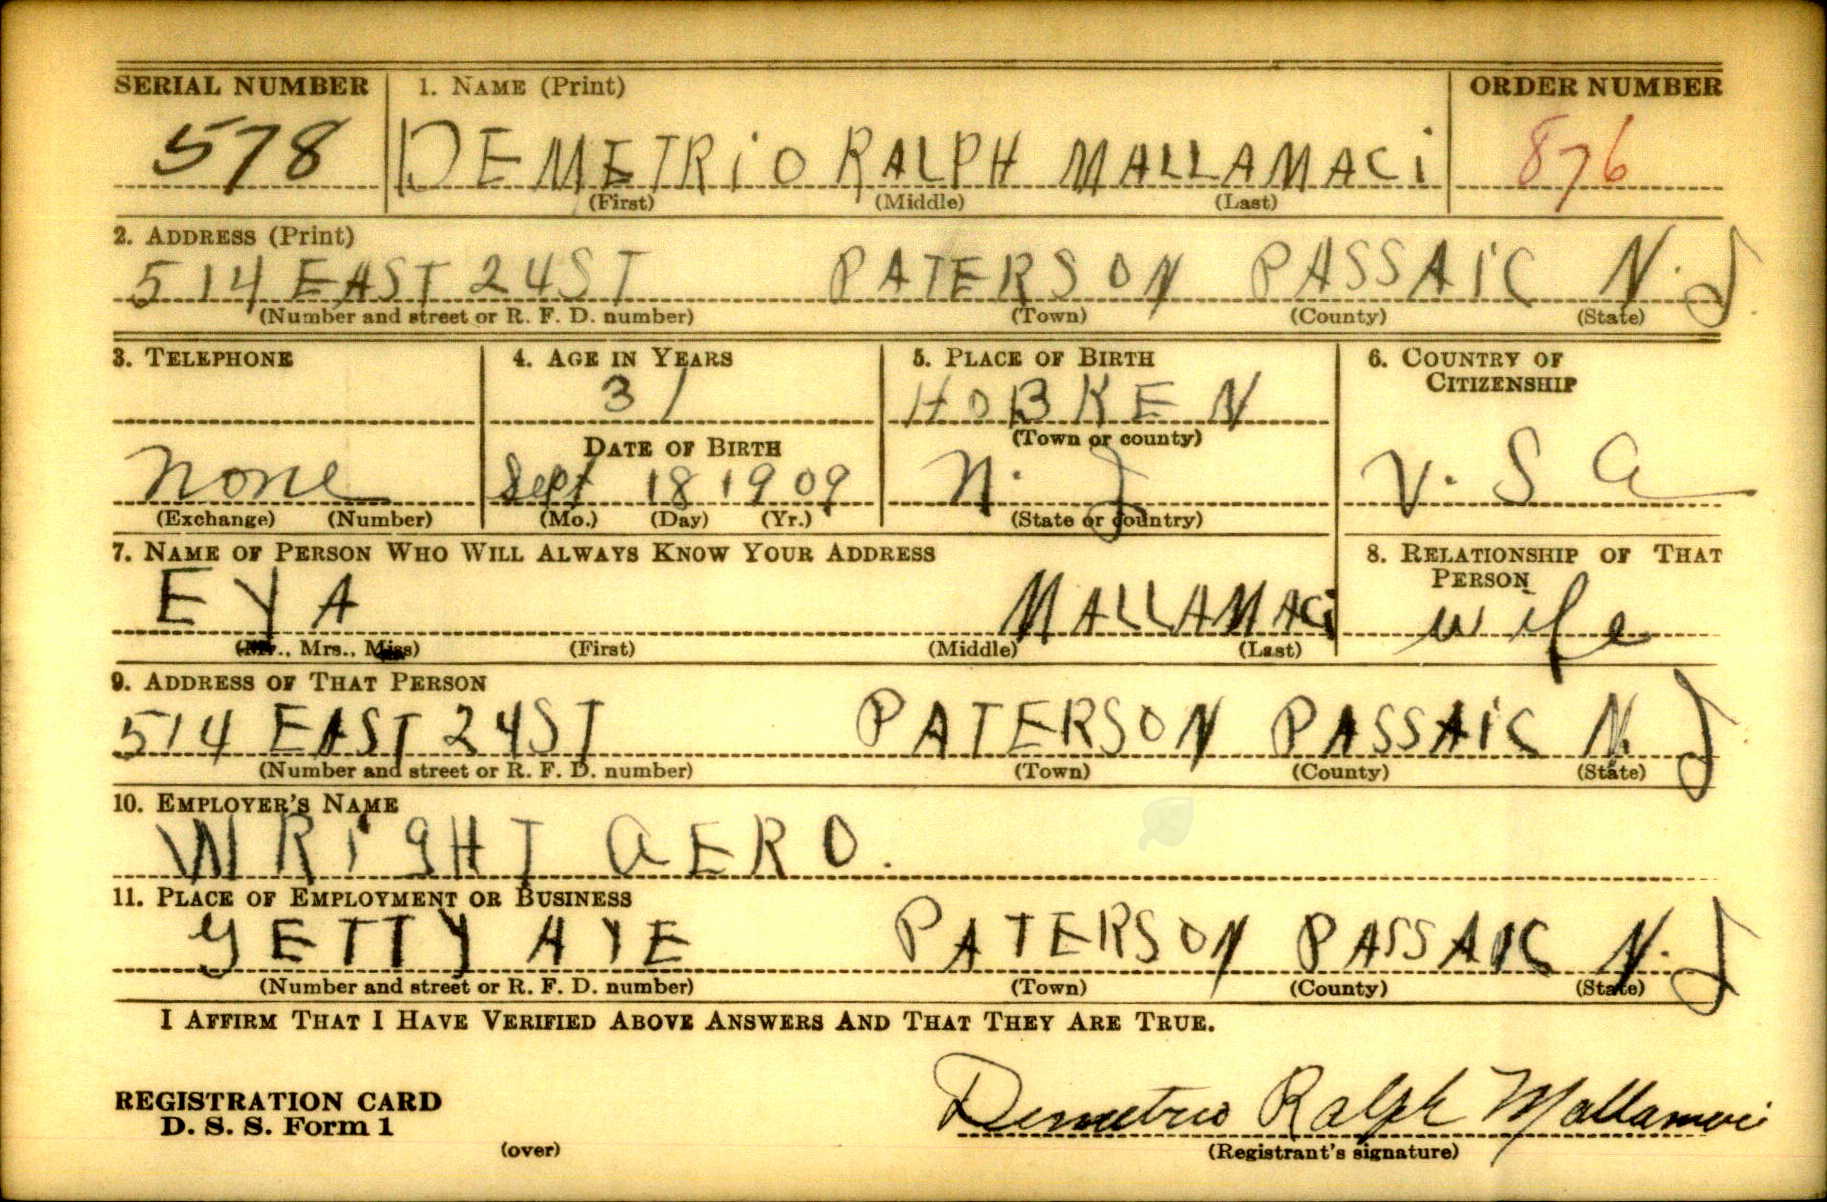 SERIAL NUMBER 1. NAME (Print) ORDER NUMBER
578 DEMETRiO RALPH MALLAMACi 876
(First) (Middle) (Last)
2. ADDRESS (Print)
514 EAST 24ST PATERSON PASSAiC N.J
(Number and street or R. F. D. number) (Town) (County) (State)
3. TELEPHONE 4. AGE IN YEARS 5. PLACE OF BIRTH 6. COUNTRY OF
CITIZENSHIP
31 HOBKEN
DATE OF BIRTH (Town or county)
None Sept 18 1909 N. J U. S a
(Exchange) (Number) (Mo.) (Day) (Yr.) (State or country)
7. NAME OF PERSON WHO WILL ALWAYS KNOW YOUR ADDRESS 8. RELATIONSHIP OF THAT
PERSON
EVA MALLAMACi wife
(Mr., Mrs., Miss) (First) (Middle) (Last)
9. ADDRESS OF THAT PERSON
514 EAST 24ST PATERSON PASSAiC N. J
(Number and street or R. F. D. number) (Town) (County) (State)
10. EMPLOYER'S NAME
WRiGHT AERO.
11. PLACE OF EMPLOYMENT OR BUSINESS
GETTY AVE PATERSON PASSAiC N. J
(Number and street or R. F. D. number) (Town) (County) (State)
I AFFIRM THAT I HAVE VERIFIED ABOVE ANSWERS AND THAT THEY ARE TRUE.
REGISTRATION CARD
D. S. S. Form 1
(over)
Demetrio Ralph Mallamaci
(Registrant's signature)